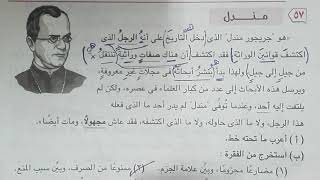 ٥٧ منــدل
«هو "جريجور مندل" الذى دخل التاريخ على أنه الرجل الذى
اكتشف قوانين الوراثة؛ فقد اكتشف أن هناك صفات وراثية تنتقل
من جيل إلى جيل، ولهذا بدأ ينشر أبحاثه فى مجلات غير معروفة،
ويرسل هذه الأبحاث إلى عدد من كبار العلماء فى عصره، ولم
يلتفت إليه أحد، وعندما توفى "مندل" لم يدر أحد ما فعله
هذا الرجل، ولا ما الذى حاوله، ولا ما الذى اكتشفه، فقد عاش مجهولا، ومات أيضًا».
(أ) أعرب ما تحته خط.
(ب) استخرج من الفقرة :
(١) مضارعًا مجزومًا، وبيِّن علامة الجزم. (٢) ممنوعًا من الصرف، وبيِّن سبب المنع.